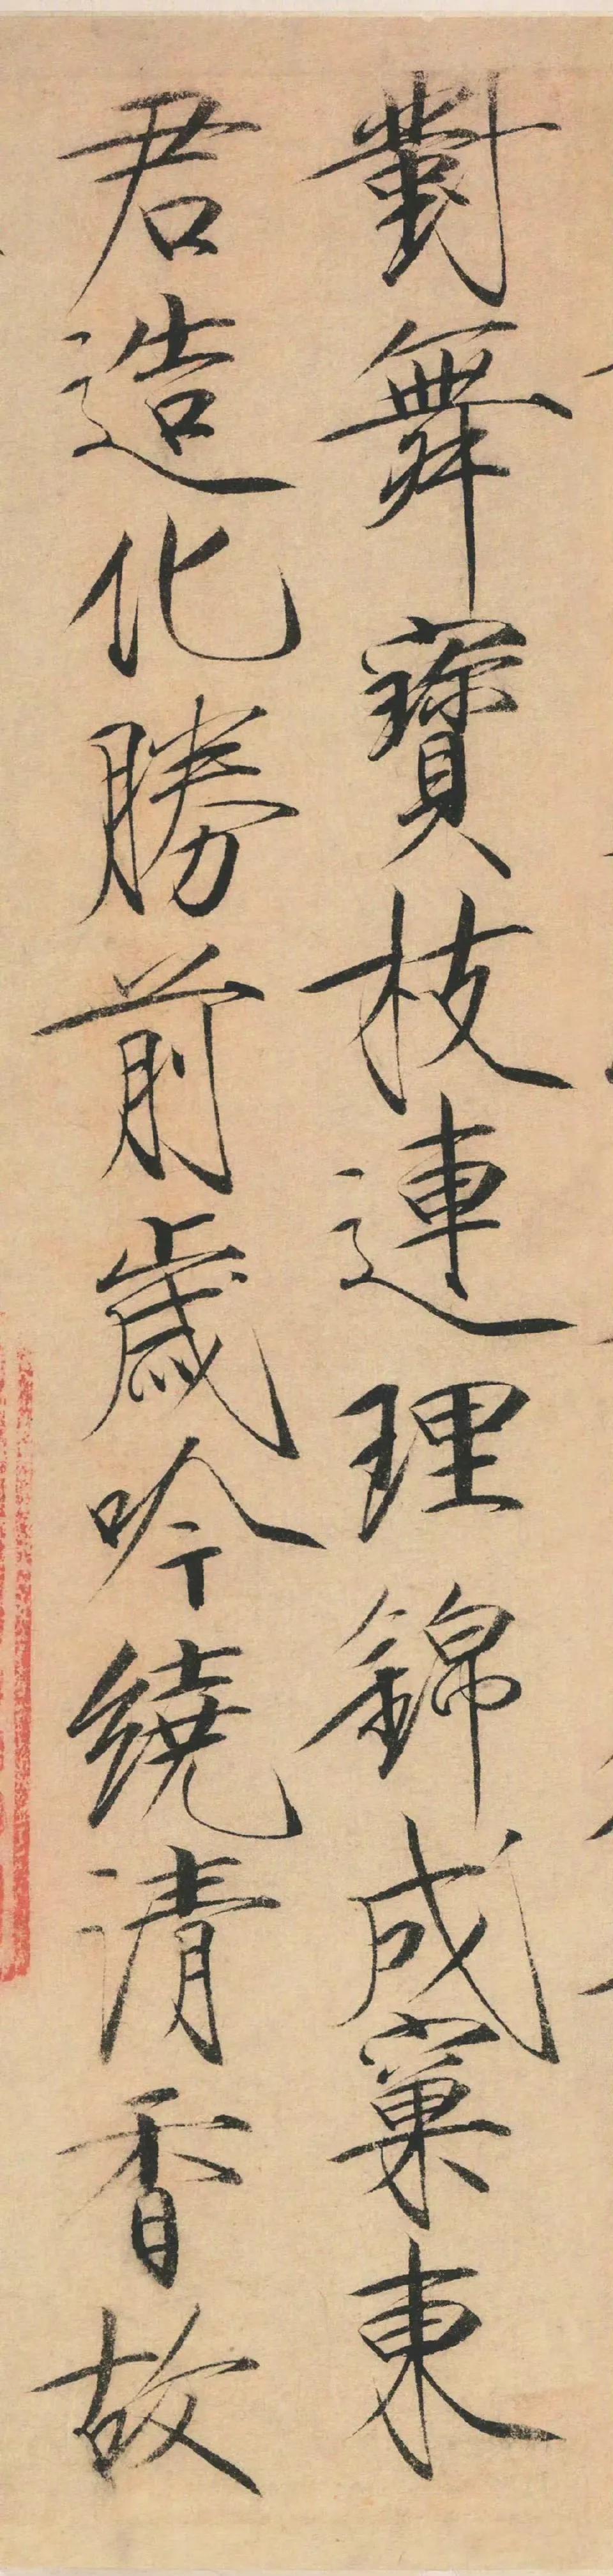 對舞寶枝連理錦成窠東
君造化勝前歲吟繞清香故